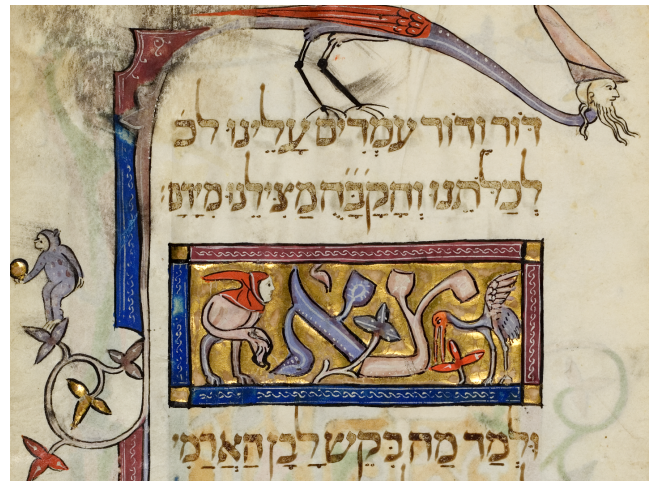 דּוֹר וָדוֹר עֹמְדִים עָלֵינוּ לכ
לְכַלֹּתֵנוּ וְהַקָּבָּה מַצִּילֵנוּ
צא
וּלְמַד מַה בִּקֵּשׁ לָבָן הָאֲרַמִּי